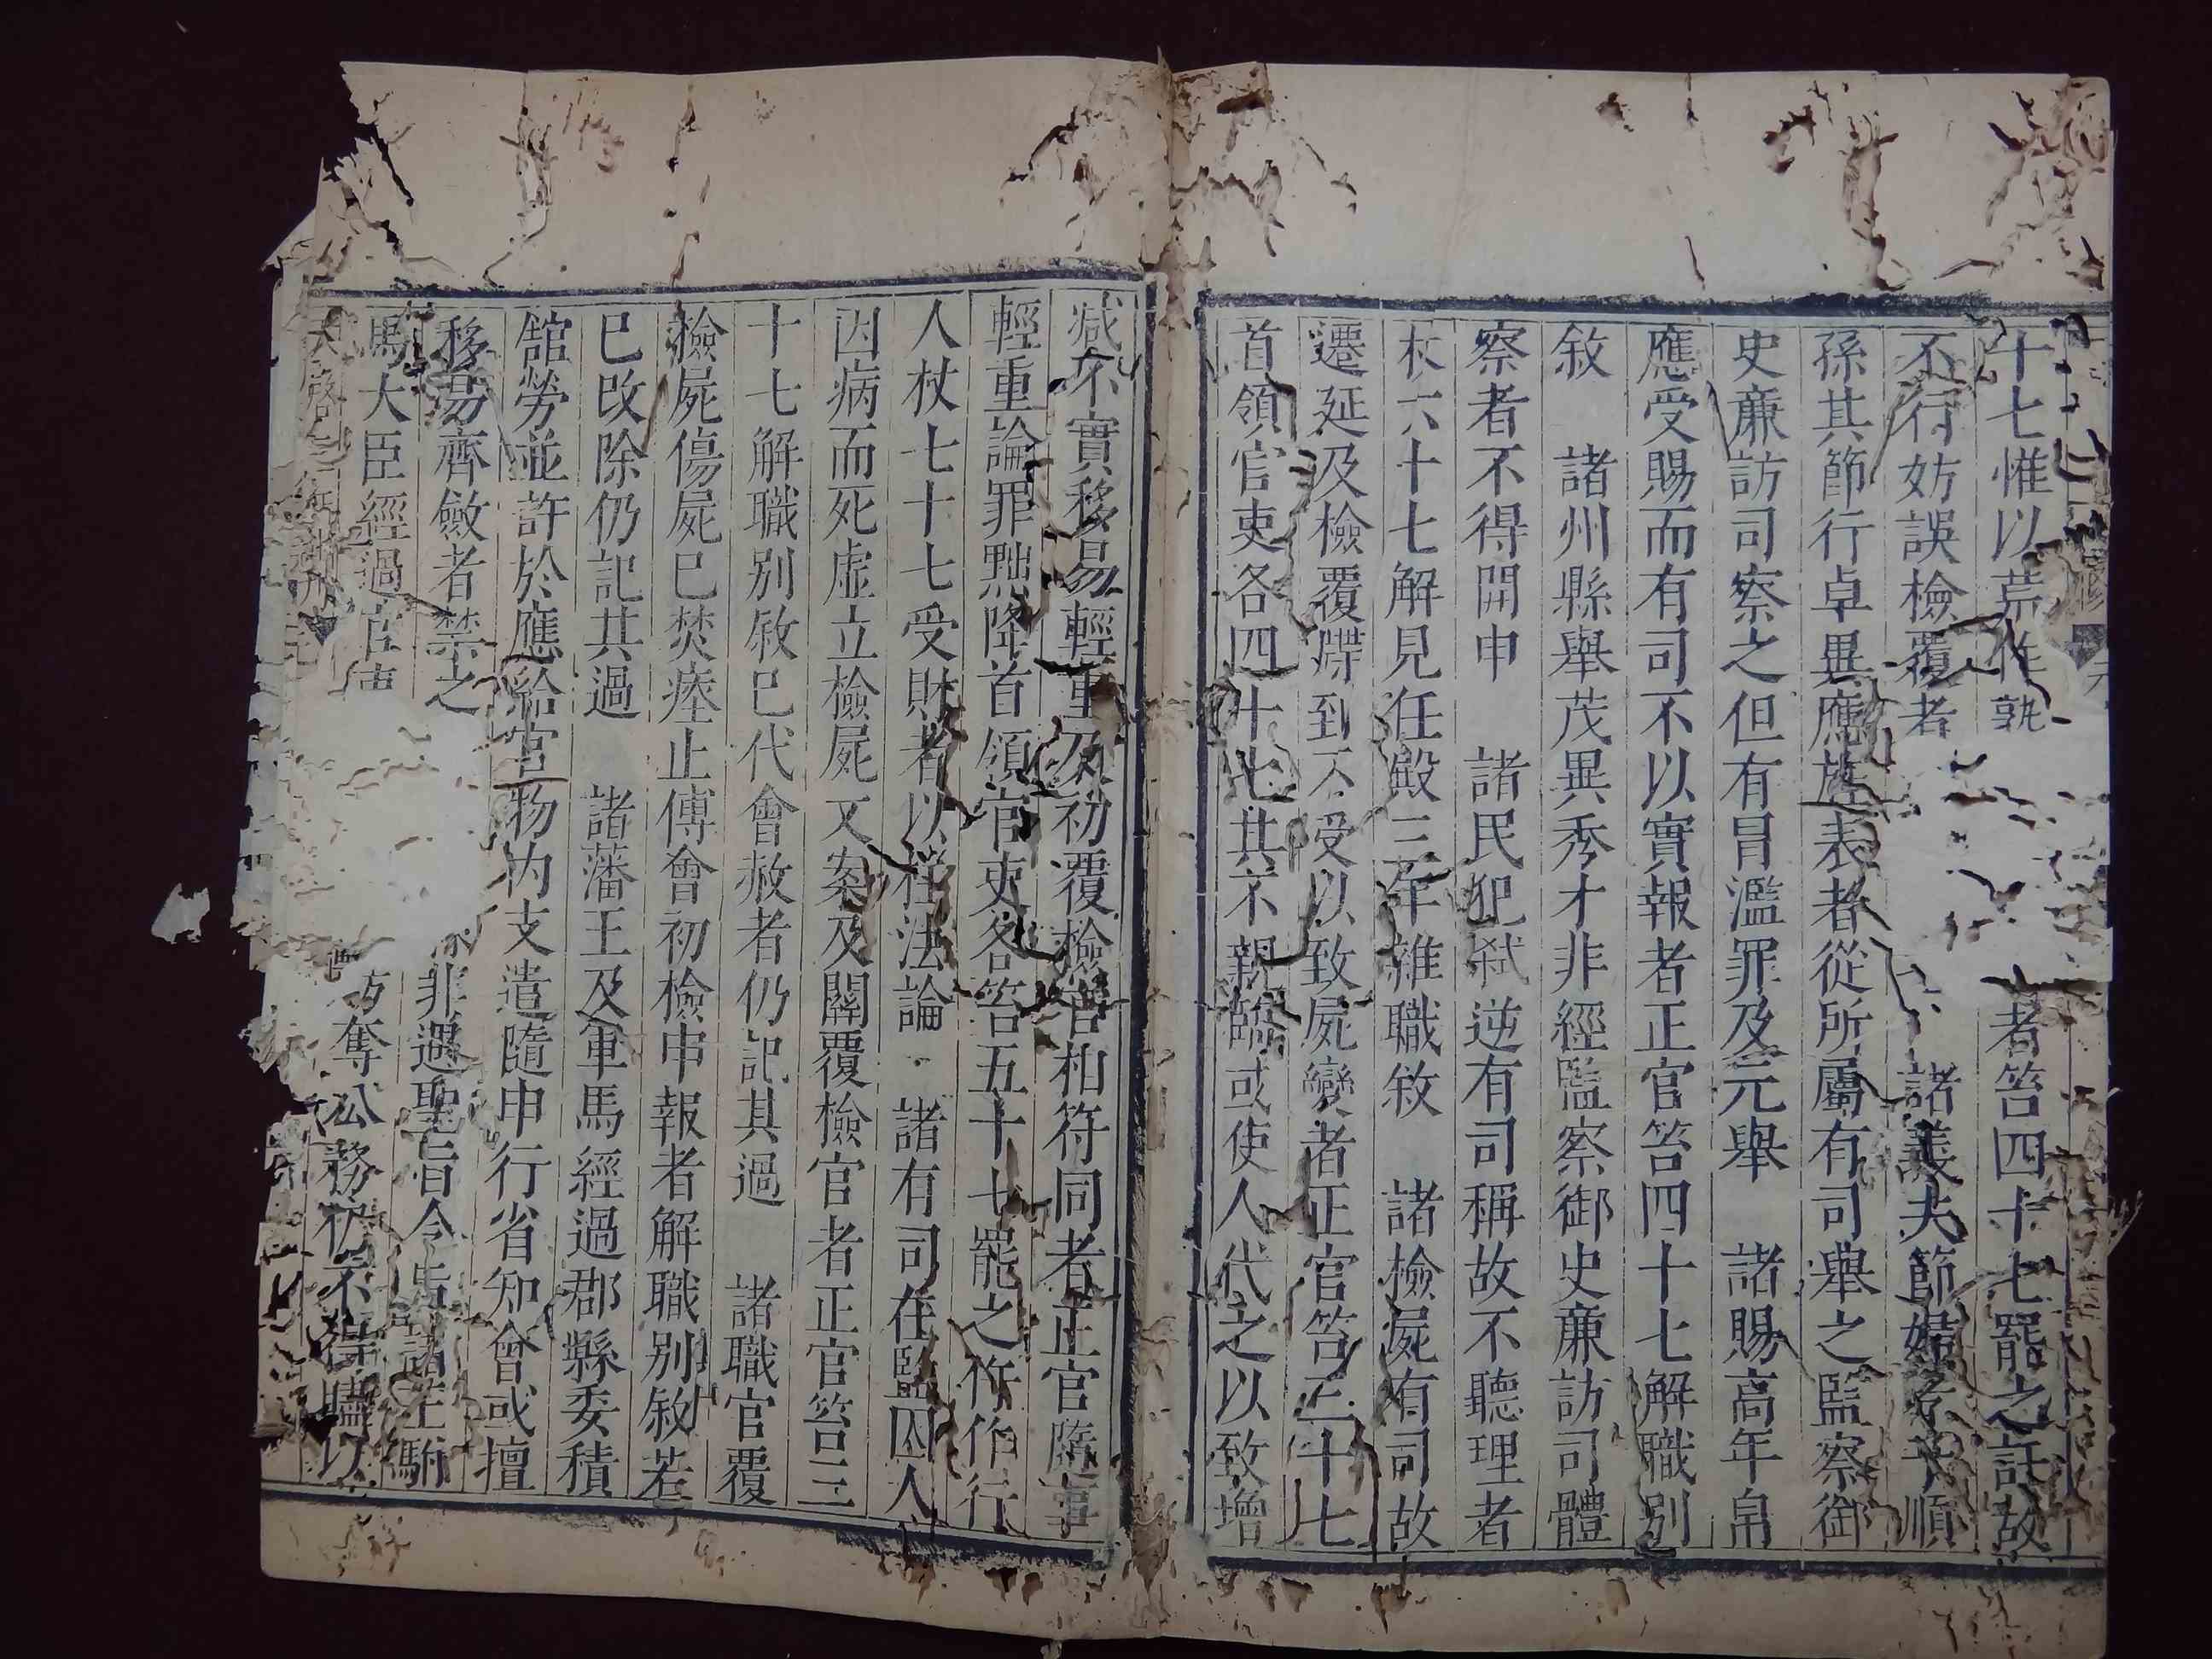 十七惟以荒作熟者笞四十七罷之託故
不行妨誤檢覆者諸義夫節婦孝子順
孫其節行卓異應旌表者從所屬有司舉之監察御
史廉訪司察之但有冒濫罪及元舉　諸賜高年帛
應受賜而有司不以實報者正官笞四十七解職別
敘　諸州縣舉茂異秀才非經監察御史廉訪司體
察者不得開申　諸民犯弒逆有司稱故不聽理者
杖六十七解見任殿三年雜職敘　諸檢屍有司故
遷延及檢覆牒到不受以致屍變者正官笞三十七
首領官吏各四十七其不親臨或使人代之以致增
減不實移易輕重及初覆檢官相符同者正官隨事
輕重論罪黜降首領官吏各笞五十七罷之仵作行
人杖七十七受財者以枉法論　諸有司在監囚人
因病而死虛立檢屍文案及關覆檢官者正官笞三
十七解職別敘已代會赦者仍記其過　諸職官覆
檢屍傷屍已焚瘞止傅會初檢申報者解職別敘若
已改除仍記其過　諸藩王及軍馬經過郡縣委積
館勞並許於應給官物內支遣隨申行省知會或擅
移易齊斂者禁之非遇聖旨令旨諸王駙
馬大臣經過官奪公務仍不得贐以